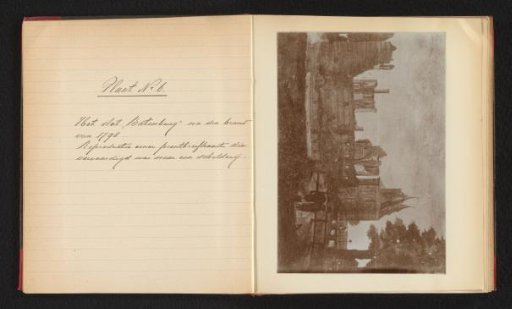 Plaat No 6.
Het slot "Batenburg" na den brand
van 1795
Reproductie eener prentbriefkaart die
vervaardigd was naar een schilderij.